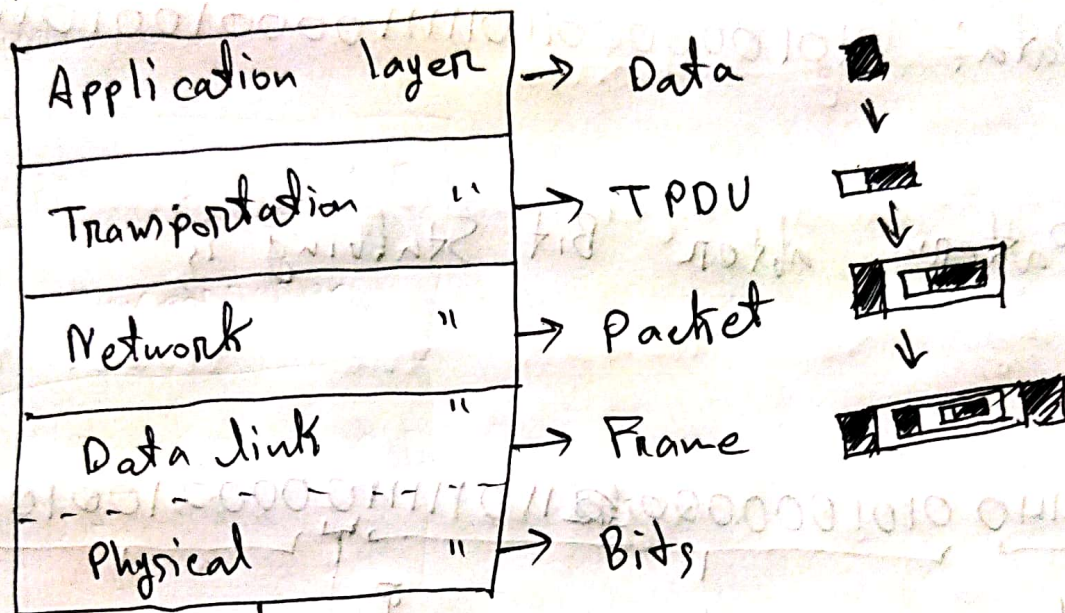 Application layer → Data
Transportation " → TPDU
Network " → Packet
Data link " → Frame
Physical " → Bits